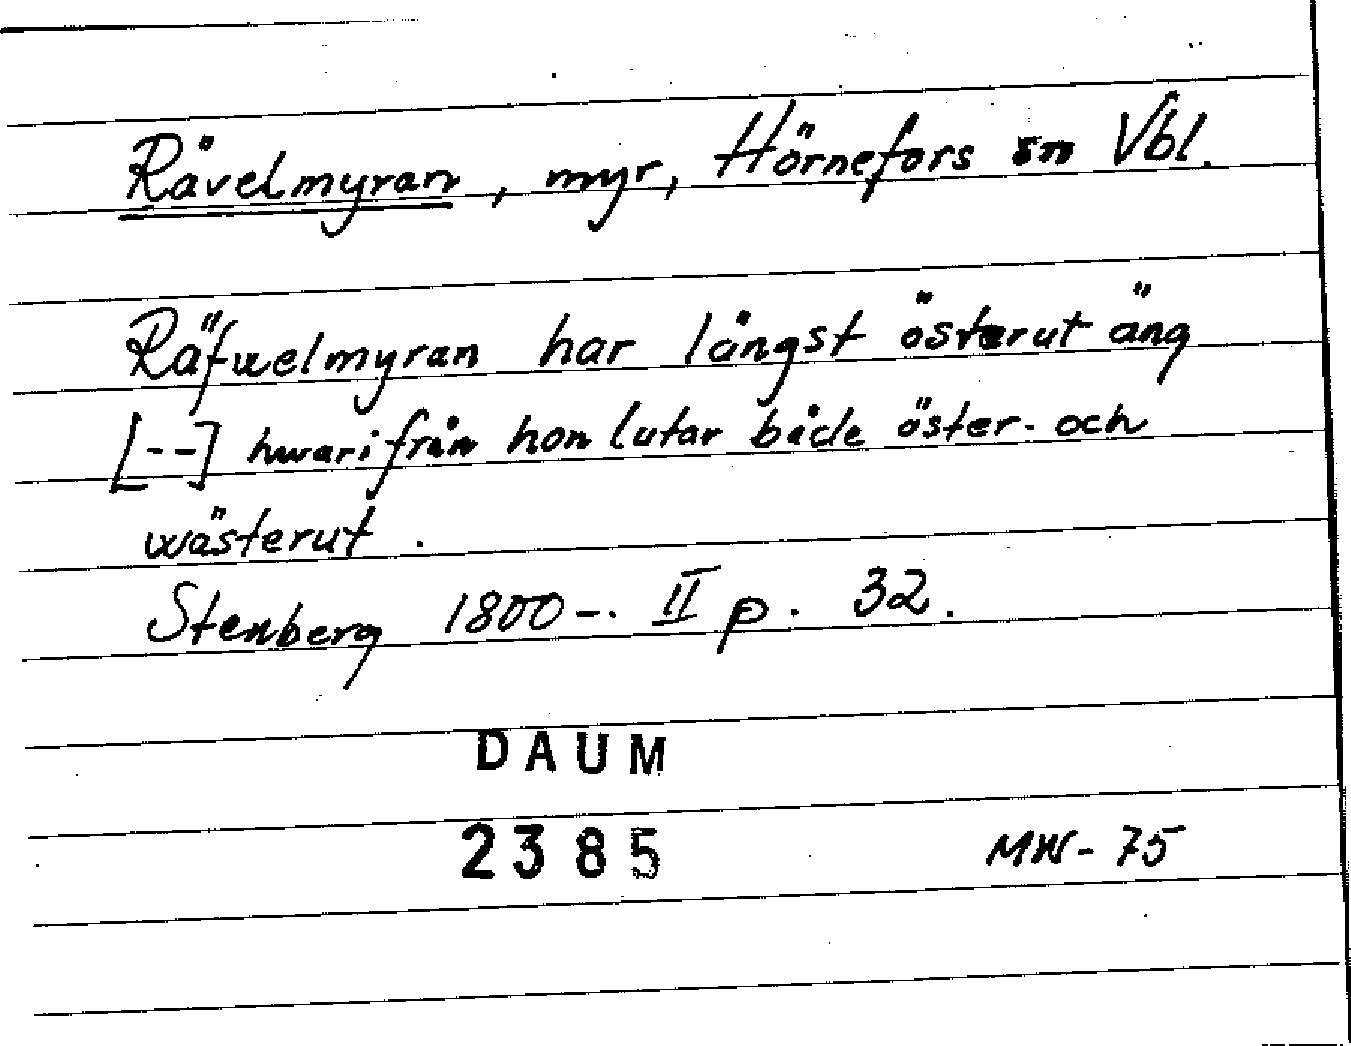 Råvelmyran, myr, Hörnefors sn Vbl.
Räfwelmyran har längst österut äng
[--] hwarifrån hon lutar både öster- och
wästerut.
Stenberg 1800-. II p. 32.
DAUM
2385
MW-75